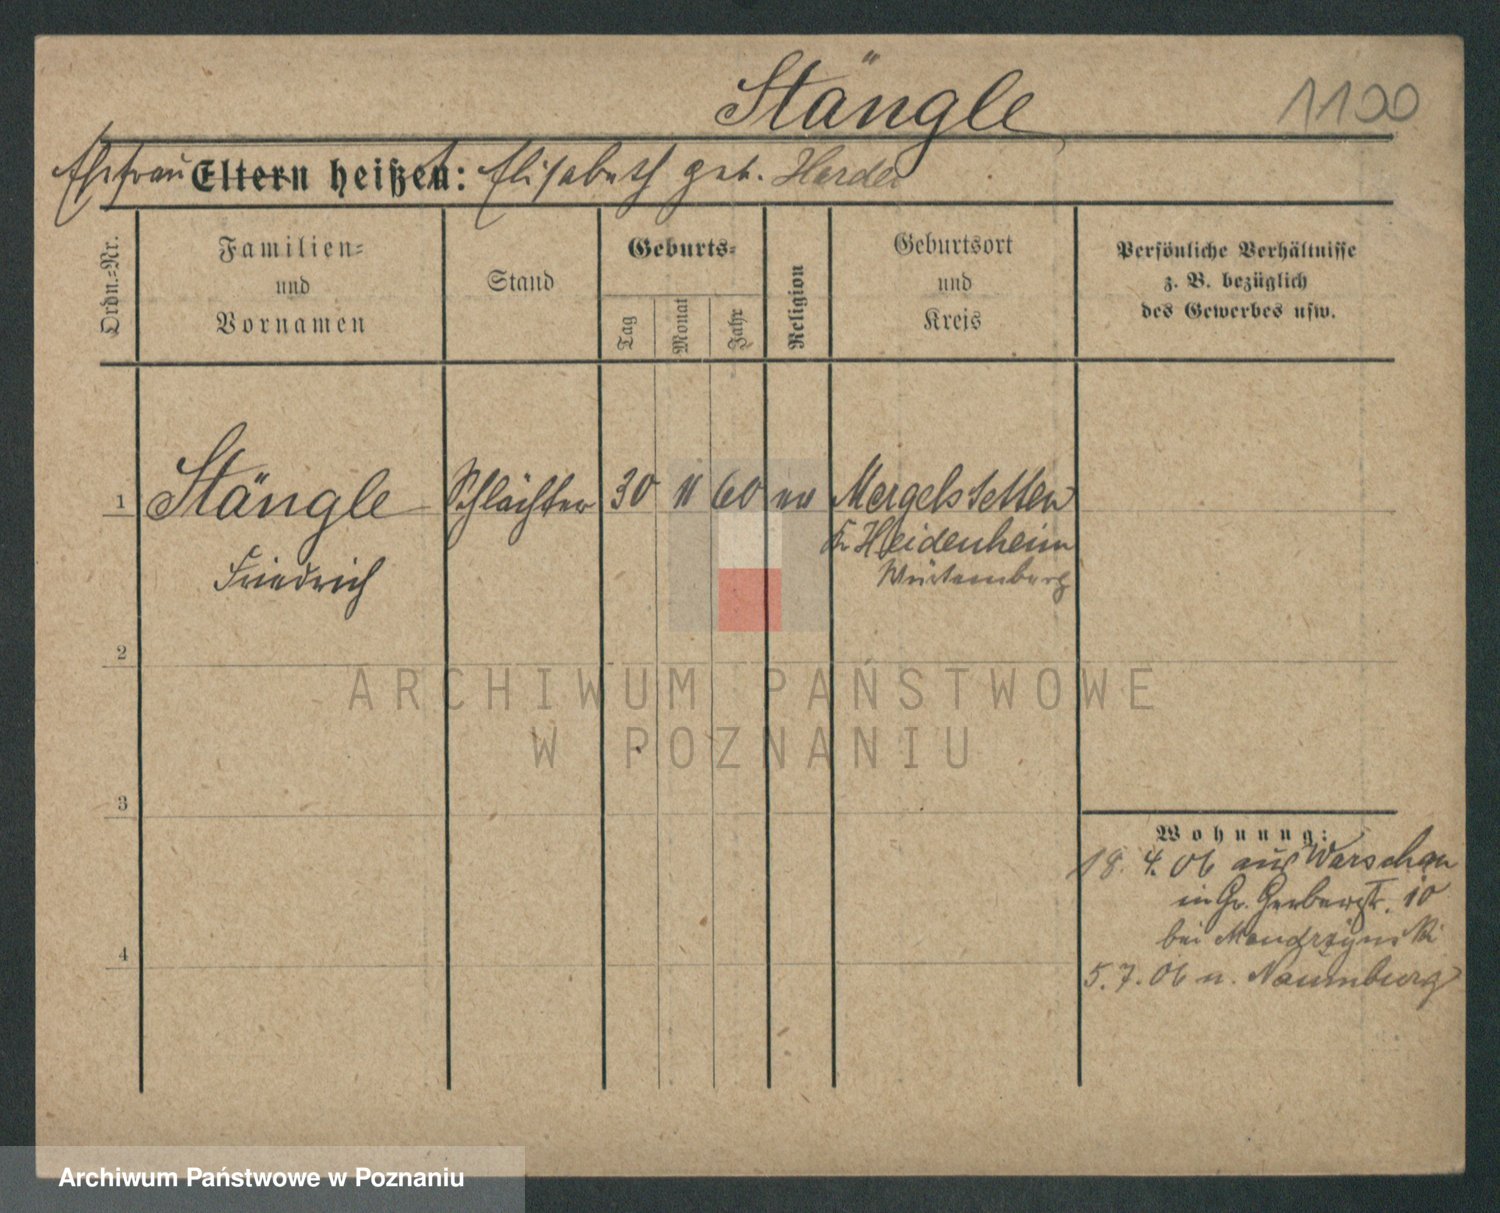 Stängle
1100
Ehefrau Eltern heißen: Elisabeth geb. Harder
Ordn.=Nr.
Familien=
und
Vornamen
Stand
Geburts=
Tag
Monat
Jahr
Religion
Geburtsort
und
Kreis
Persönliche Verhältnisse
z. B. bezüglich
des Gewerbes usw.
1 Stängle Schlächter 30 11 60 ev Mergelstetten
Kr Heidenheim
Friedrich Würtemberg
2
ARCHIWUM PAŃSTWOWE
W POZNANIU
3
Wohnung:
18. 4. 06 aus Warschau
in Gr. Gerberstr. 10
bei
4
5. 7. 06 n. Naumburg
Archiwum Państwowe w Poznaniu